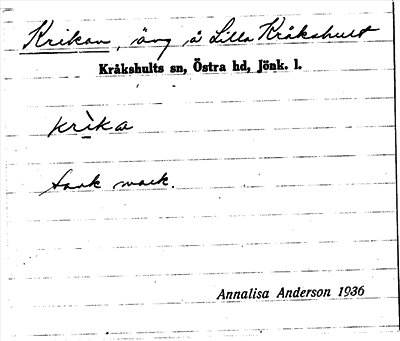 Krikan, äng å Lilla Kråkshult
Kråkshults sn, Östra hd, Jönk. l.
krìka
Sank mark.
Annalisa Anderson 1936